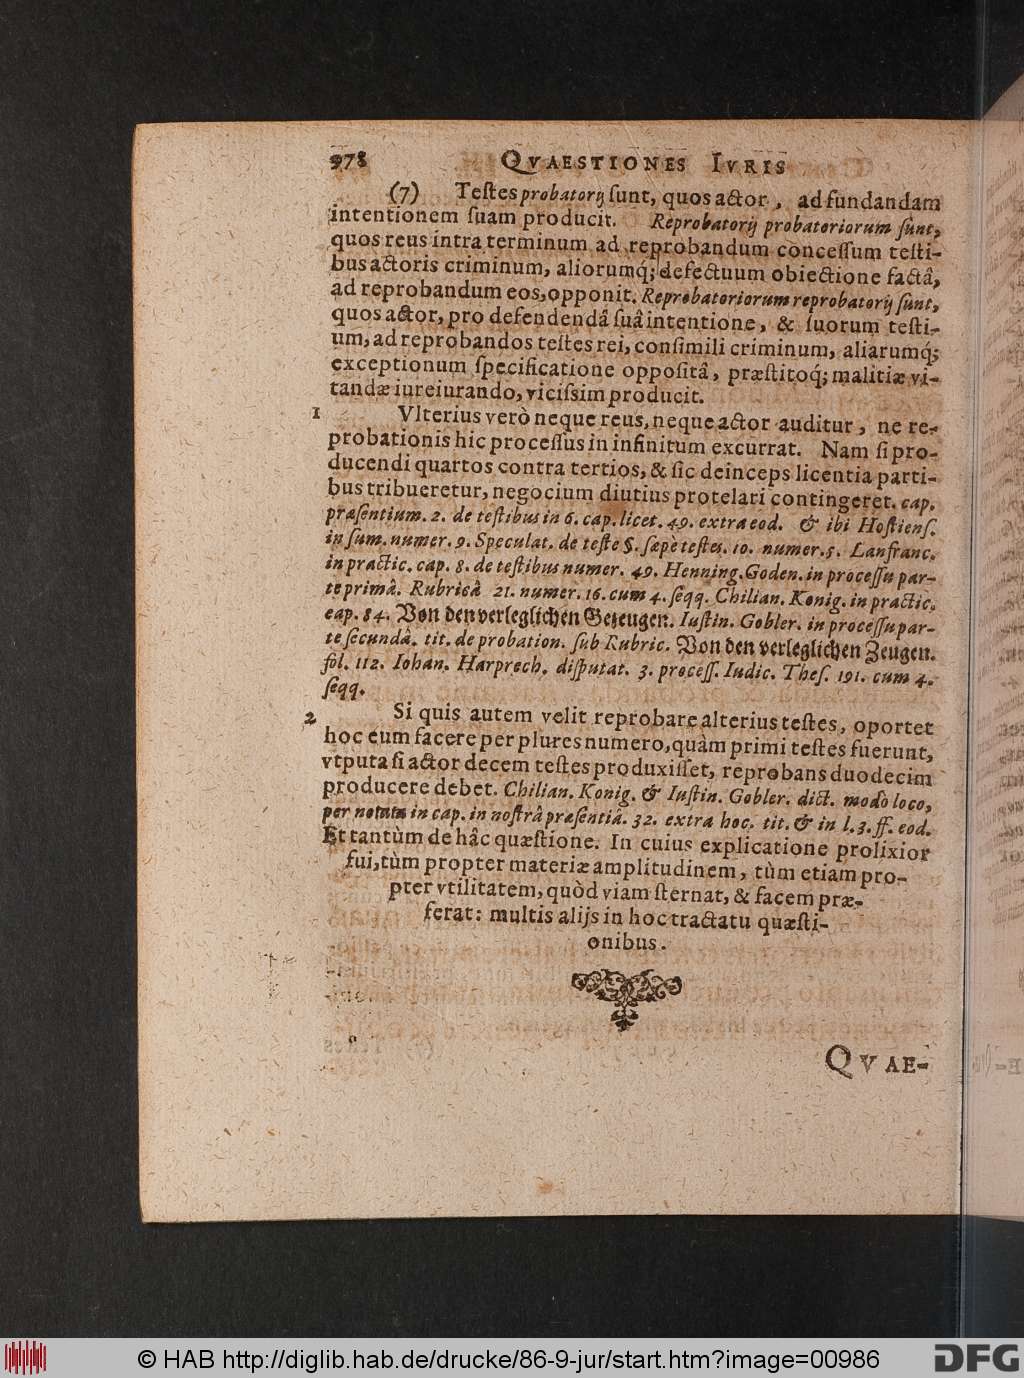 978 QVAESTIONES IVRIS
(7) Teſtes probatorij ſunt, quos actor, ad fundandam
intentionem ſuam producit. Reprobatorij probatoriorum ſunt,
quos reus intra terminum ad reprobandum conceſſum teſti-
bus actoris criminum, aliorumq́; defectuum obiectione factâ,
ad reprobandum eos, opponit. Reprobatoriorum reprobatorij ſunt,
quos actor, pro defendendâ ſuâ intentione, & ſuorum teſti-
um, ad reprobandos teſtes rei, conſimili criminum, aliarumq́;
exceptionum ſpecificatione oppoſitâ, præſtitoq́; malitiæ vi-
tandæ iureiurando, viciſsim producit.
1 Vlterius verò neque reus, neque actor auditur, ne re-
probationis hic proceſſus in infinitum excurrat. Nam ſi pro-
ducendi quartos contra tertios, & ſic deinceps licentia parti-
bus tribueretur, negocium diutius protelari contingeret. cap.
præſentium. 2. de teſtibus in 6. cap. licet. 49. extra eod. & ibi Hoſtienſ.
in ſum. numer. 9. Speculat. de teſte §. ſæpè teſtes. 10. numer. 5. Lanfranc.
in practic. cap. 8. de teſtibus numer. 49. Henning. Goden. in proceſſu par-
te primâ. Rubricâ 21. numer. 16. cum 4. ſeqq. Chilian. Konig. in practic.
cap. 84. Von den verleglichen Gezeugen. Iuſtin. Gobler. in proceſſu par-
te ſecundâ. tit. de probation. ſub Rubric. Von den verleglichen Zeugen.
fol. 112. Iohan. Harprech. diſputat. 3. proceſſ. Iudic. Theſ. 191. cum 4.
ſeqq.
2 Si quis autem velit reprobare alterius teſtes, oportet
hoc eum facere per plures numero, quàm primi teſtes fuerunt,
vtputa ſi actor decem teſtes produxiſſet, reprobans duodecim
producere debet. Chilian. Konig. & Iuſtin. Gobler. dict. modò loco,
per notata in cap. in noſtrâ præſentiâ. 32. extra hoc. tit. & in l. 3. ff. eod.
Et tantùm de hâc quæſtione. In cuius explicatione prolixior
fui, tùm propter materiæ amplitudinem, tùm etiam pro-
pter vtilitatem, quòd viam ſternat, & facem præ-
ferat: multis alijs in hoc tractatu quæſti-
onibus.
QVAE-
© HAB http://diglib.hab.de/drucke/86-9-jur/start.htm?image=00986
DFG